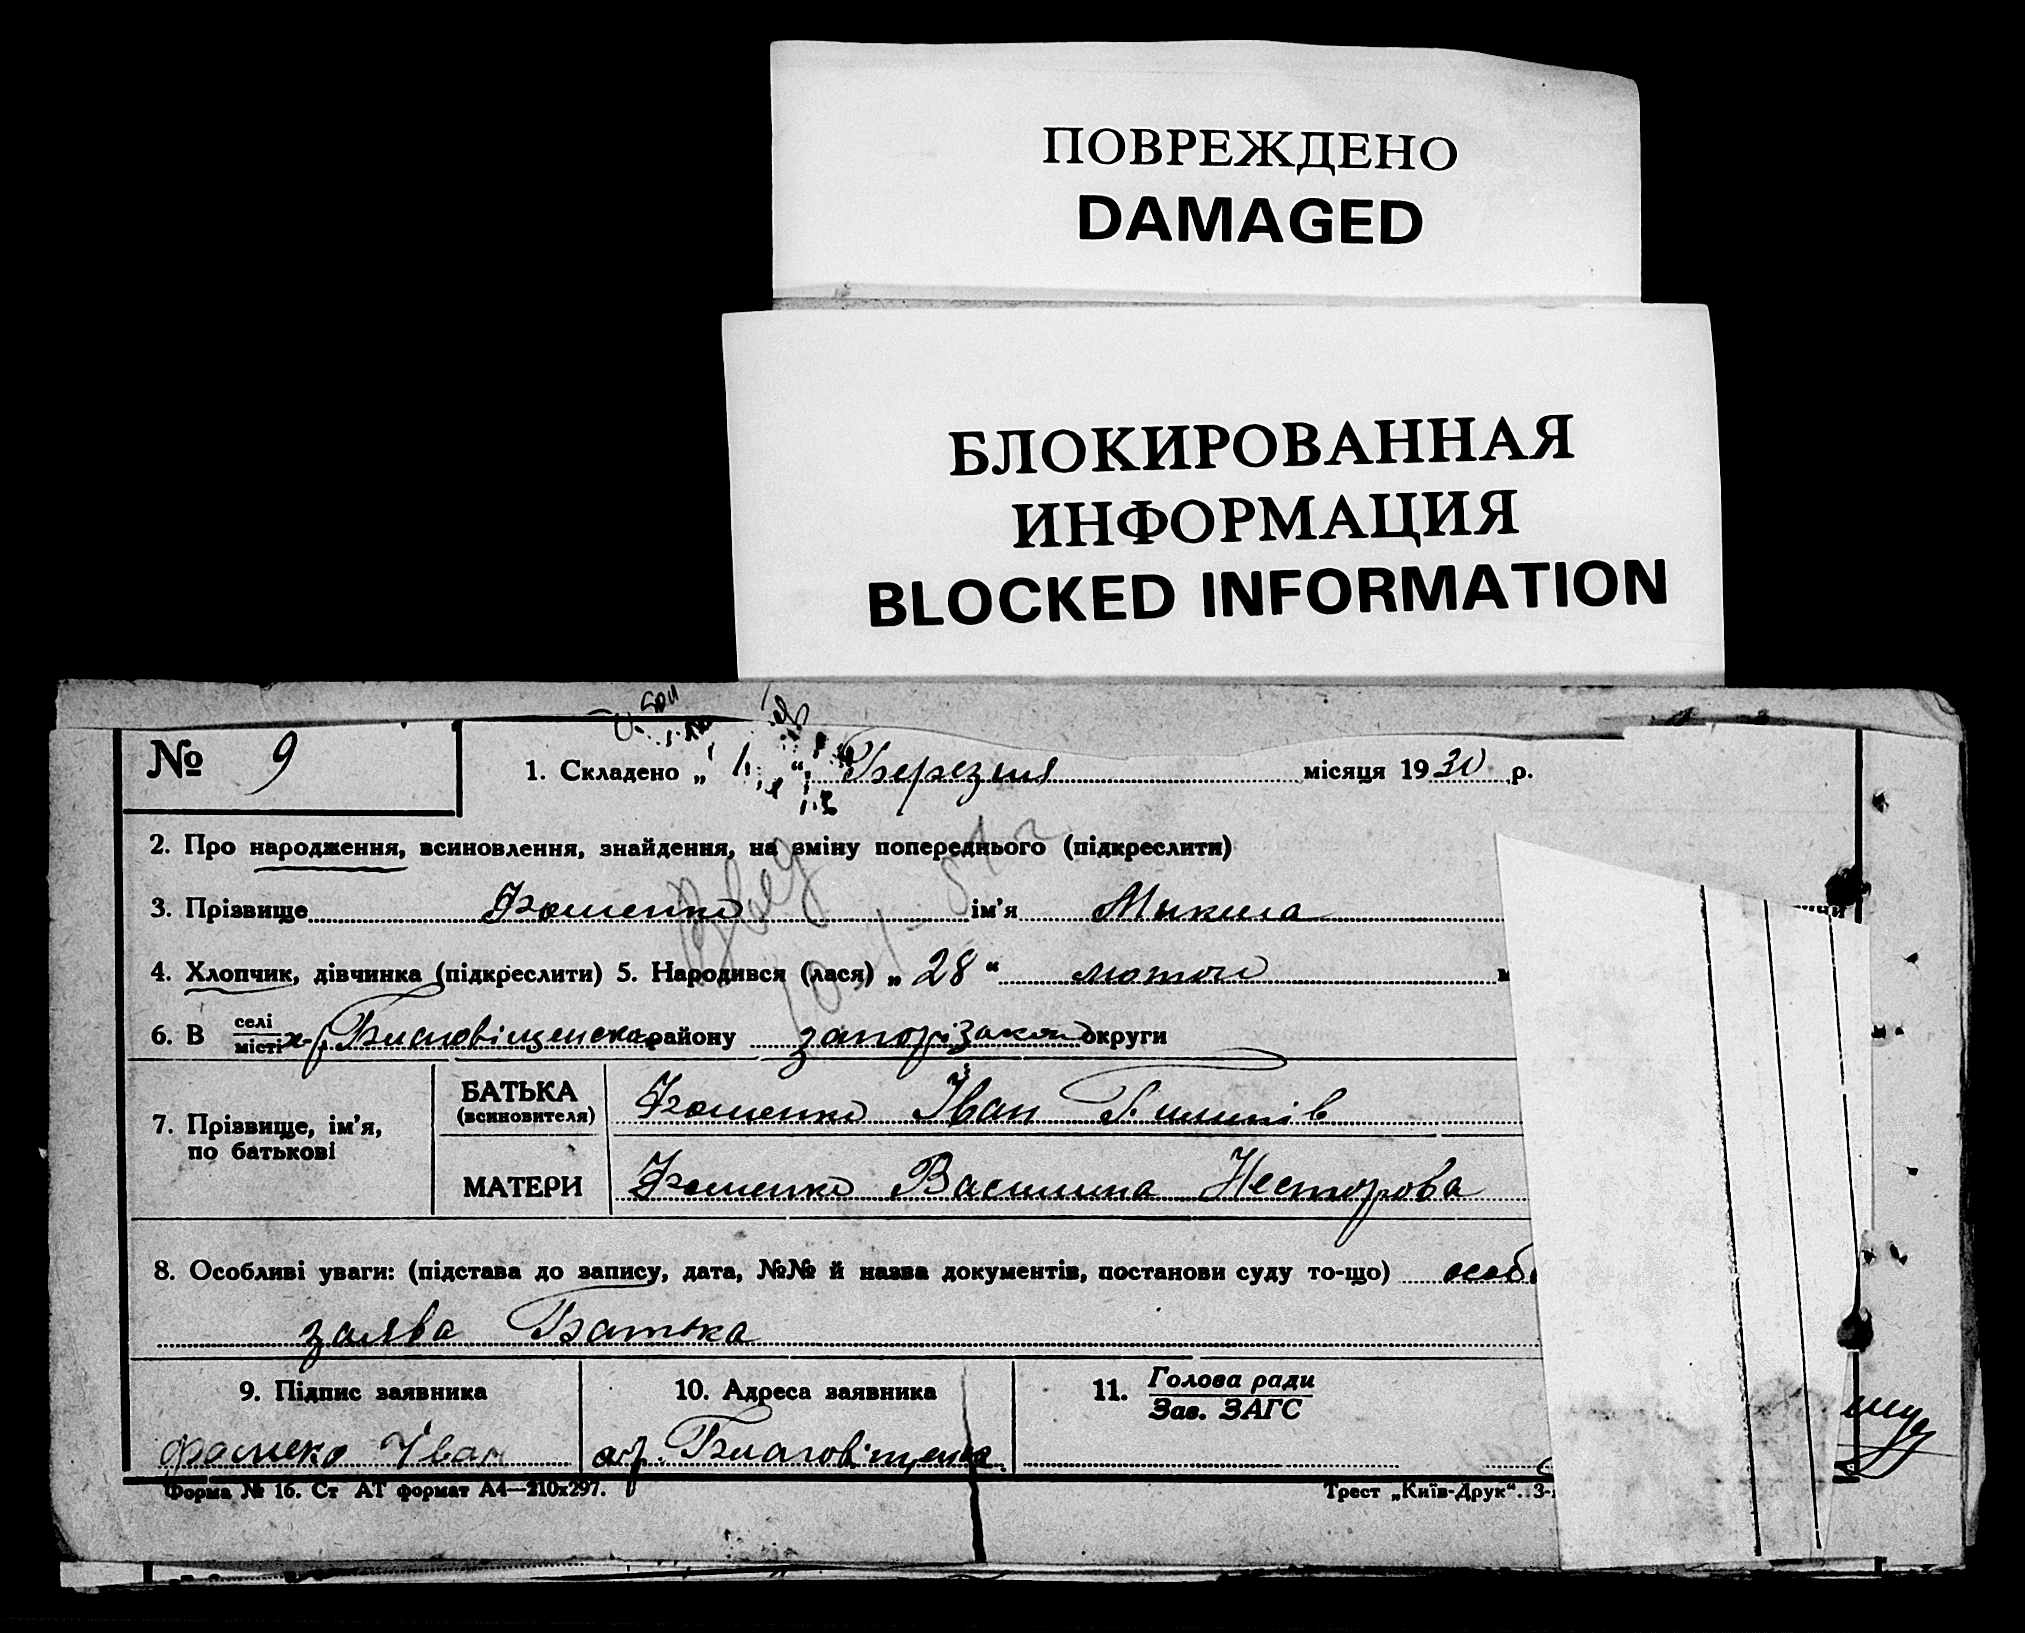 ПОВРЕЖДЕНО
DAMAGED
БЛОКИРОВАННАЯ
ИНФОРМАЦИЯ
BLOCKED INFORMATION
№ 9
1. Складено „ 1 “ Березня місяця 1930 р.
2. Про народження, всиновлення, знайдення, на зміну попереднього (підкреслити)
3. Прізвище Фоменко ім'я Микита
4. Хлопчик, дівчинка (підкреслити) 5. Народився (лася) „ 28 “ лютого
6. В селі місті х. Благовіщенськ району запорізької округи
7. Прізвище, ім'я, по батькові
БАТЬКА (всиновителя) Фоменко Іван
МАТЕРИ Фоменко Василина Несторова
8. Особливі уваги: (підстава до запису, дата, №№ й назва документів, постанови суду то-що) особ
заява Батька
9. Підпис заявника
10. Адреса заявника
11. Голова ради
Зав. ЗАГС
Фоменко Іван
Форма № 16. Ст АТ формат А4—210x297.
Трест „Київ-Друк“. 3-